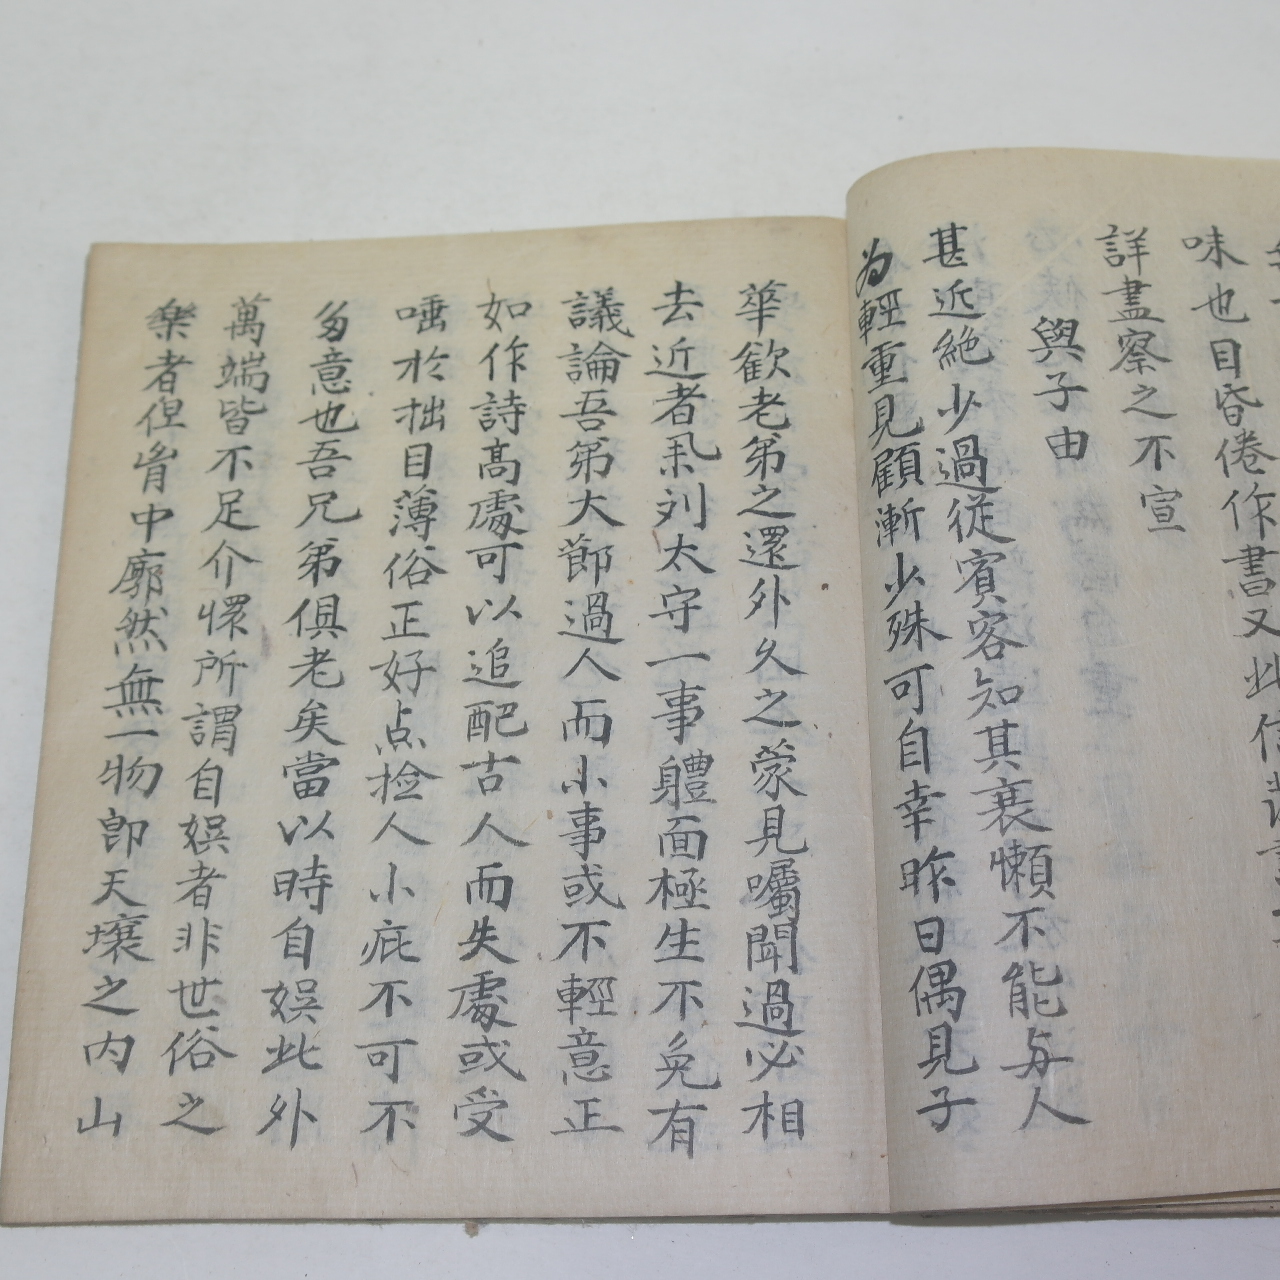 味也目昏倦作書又此信
詳盡察之不宣
與子由
甚近絶少過従賓客知其衰懶不能与人
为輕重見顧漸少殊可自幸昨日偶見子
華歓老苐之還外久之蒙見囑聞過必相
去近者刘太守一事軆面極生不免有
議論吾苐大節過人而小事或不輕意正
如作詩髙處可以追配古人而失處或受
唾扵拙目薄俗正好点捡人小疵不可不
多意也吾兄苐俱老矣當以時自娯此外
萬端皆不足介懐所謂自娯者非世俗之
樂者但胷中廓然無一物即天壤之内山